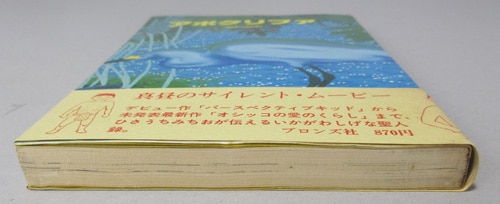 アポクリファ
真昼のサイレント・ムービー
デビュー作「パースペクティブキッド」から
未発表最新作「オシッコの愛のくらし」まで、
ひさうちみちおが伝えるいかがわしげな聖人
録。
ブロンズ社 870円